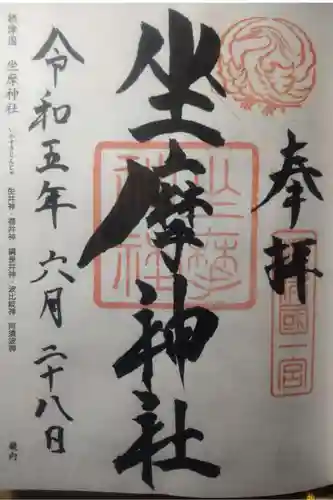 奉拝
坐摩神社
令和五年 六月 二十八日
摂津国 坐摩神社 いかすりじんじゃ 生井神・福井神・綱長井神・波比祇神・阿須波神
摂津國一宮
坐摩神社